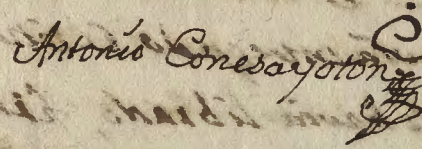 Antonio Conesa y oton